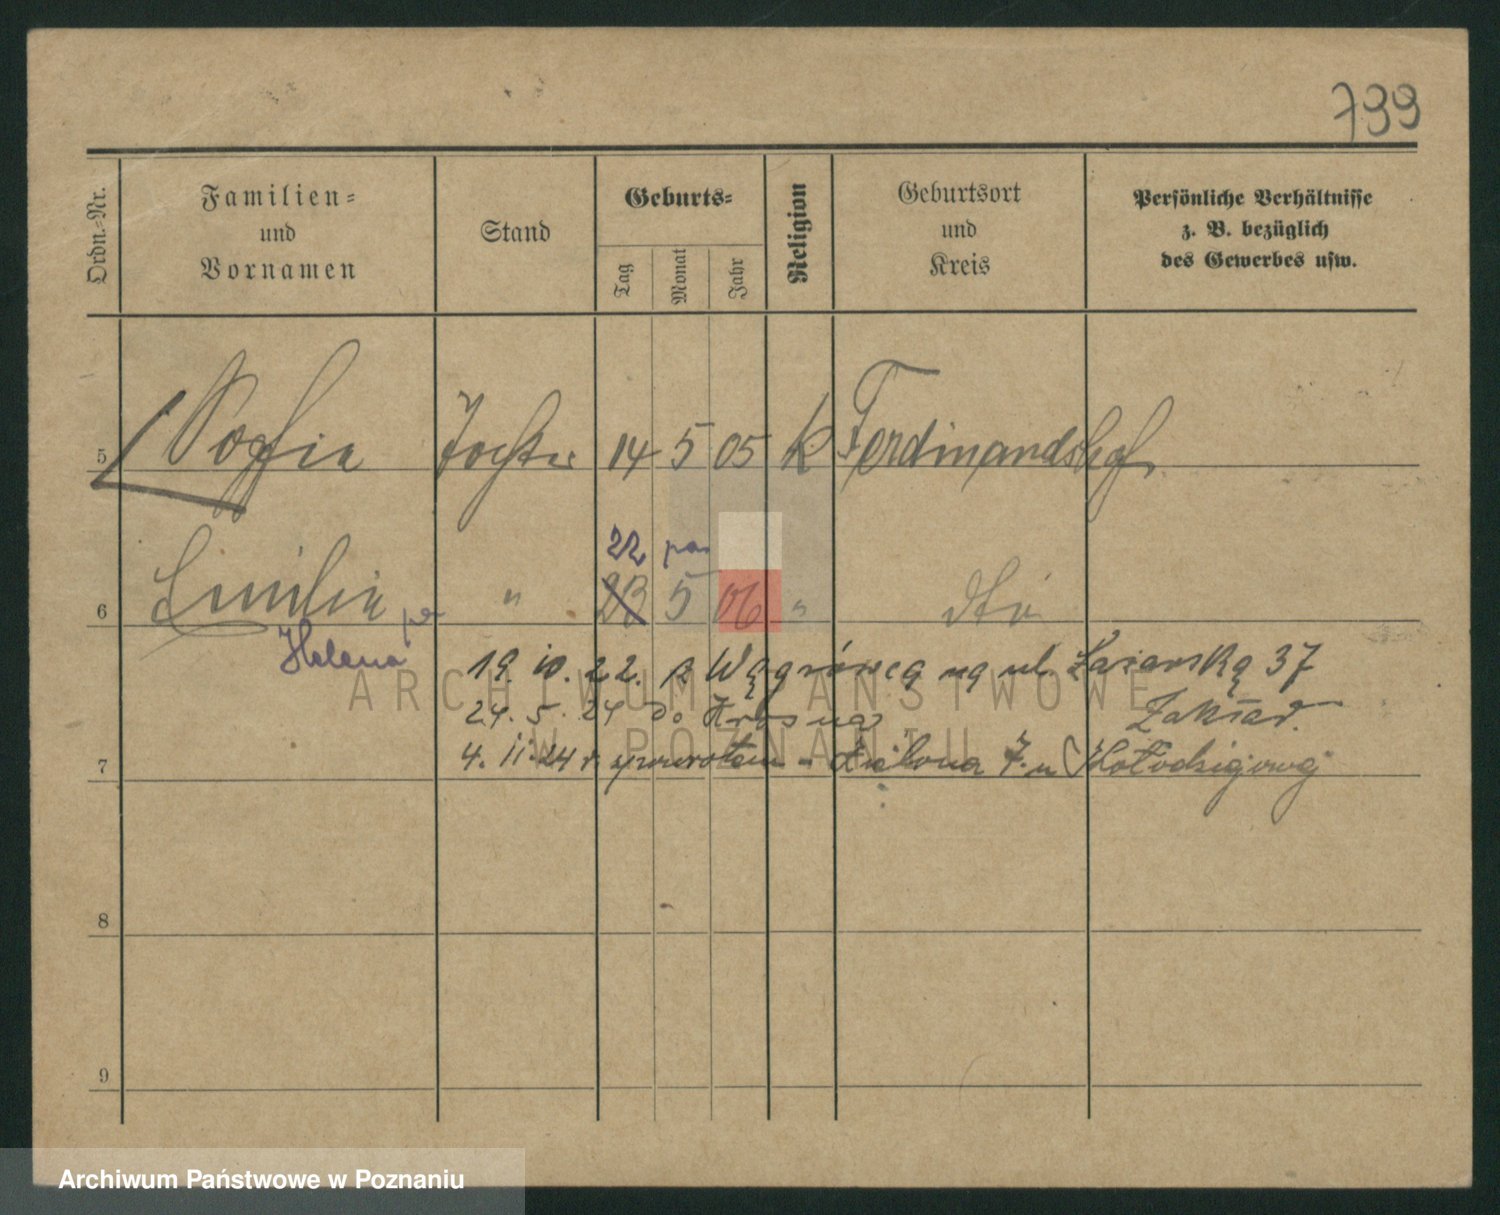 799
Ordn.-Nr.
Familien-
und
Vornamen
Stand
Geburts-
Tag
Monat
Jahr
Religion
Geburtsort
und
Kreis
Persönliche Verhältnisse
z. B. bezüglich
des Gewerbes usw.
5 Sofie Tochter 14 5 05 k Ferdinandshof
22
6 Emilie " 23 5 06 " dto
Helena
19. 10. 22. z Wągrówca na ul. Łazarską 37
24. 5. 24 do
4. 11. 24 r. spowrotem - Zielona 7. u
7
8
9
ARCHIWUM PAŃSTWOWE
W POZNANIU
Archiwum Państwowe w Poznaniu